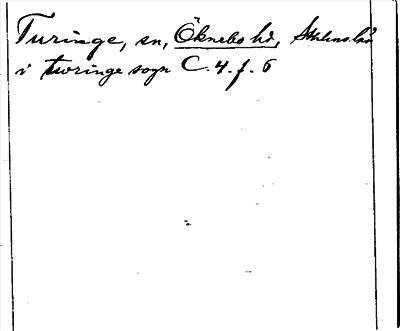 Turinge, sn, Öknebo hd, Sthlms län
i turinge sogn C. 4. f. 6